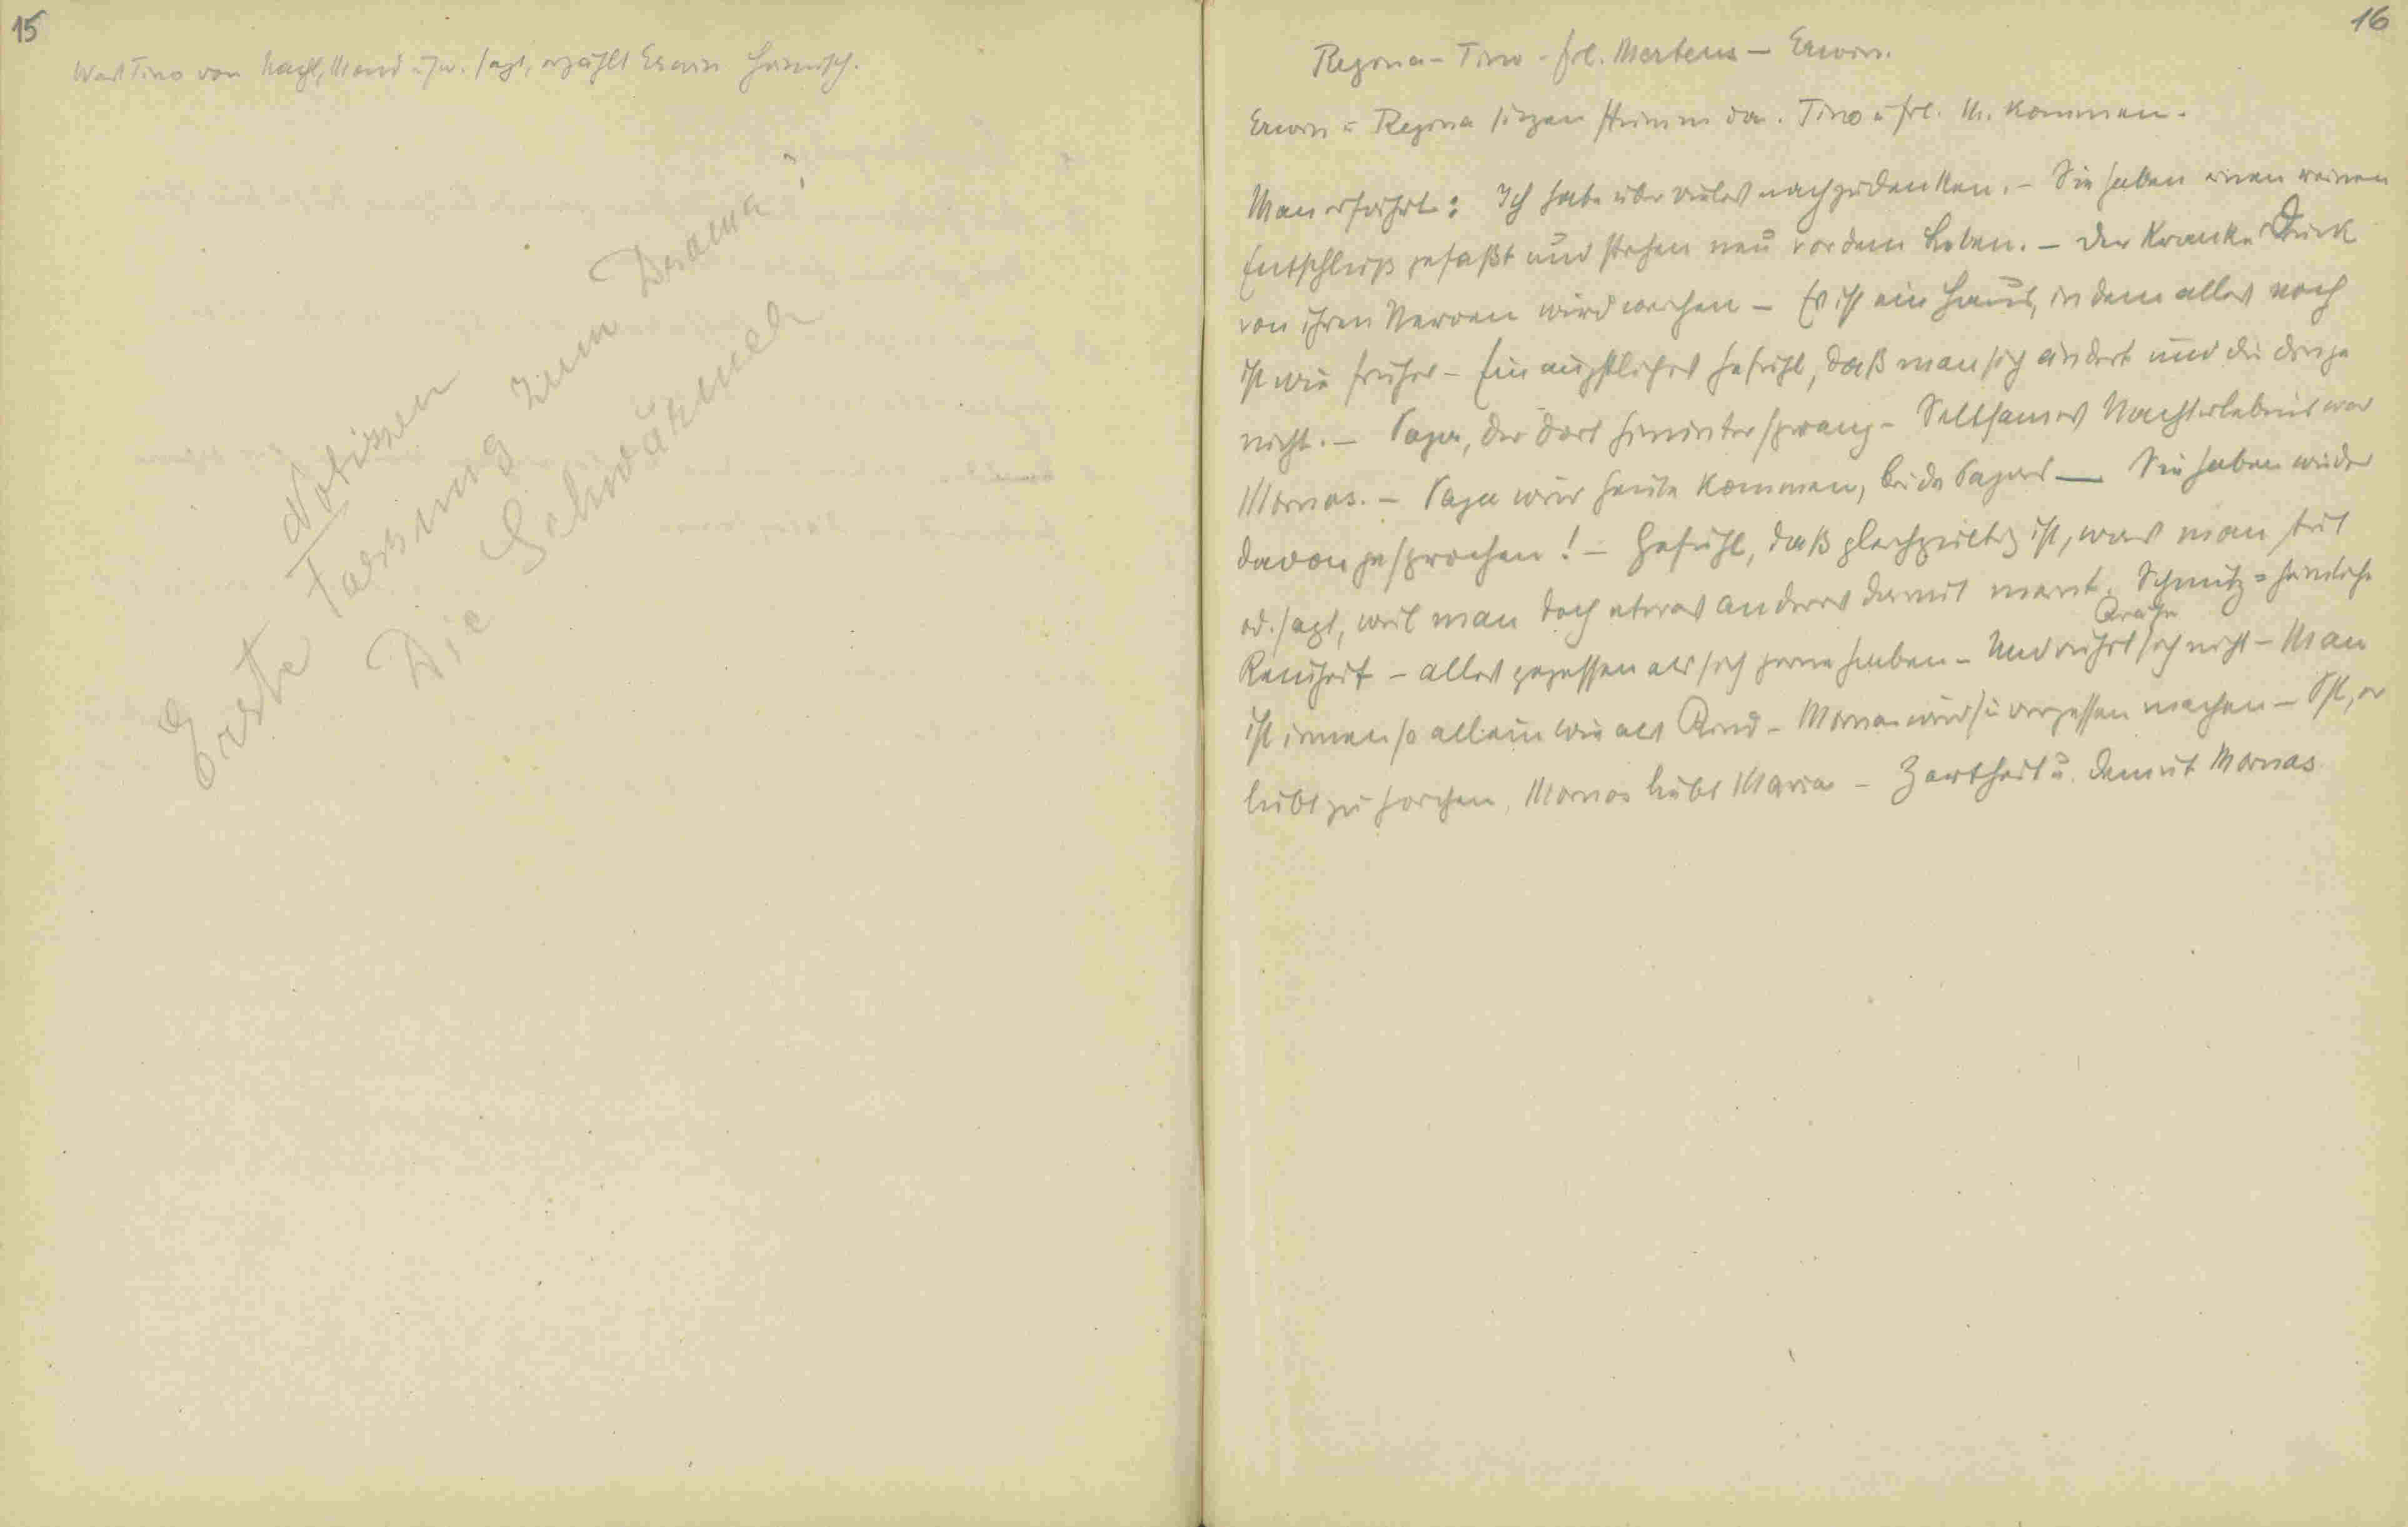 15
Was Tino von Nacht, Mond usw. sagt, erzählt Erwin
Notizen
Erste Fassung zum Drama:
Die Schwärmer
16
Regina – Tino – Frl. Mertens – Erwin.
Erwin u Regina sitzen stumm da. Tino u Frl. M. kommen.
Man erfährt: Ich habe über vieles nachzudenken. – Sie haben einen reinen
Entschluß gefaßt und stehen neu vor dem Leben. – Der kranke Druck
von ihren Nerven wird weichen – Es ist ein Haus, in dem alles noch
ist wie früher – Ein ängstliches Gefühl, daß man sich ändert und die Dinge
nicht. – Papa, der dort hinunter sprang – Seltsames Nachterlebnis war
Mornas. – Papa wird heute kommen, beide Papas — Sie haben wieder
davon gesprochen! – Gefühl, daß gleichgiltig ist, was man tut
od. sagt, weil man doch etwas anderes damit meint. Schmutz = heimliche
Reinheit – alles gegessen als sich gerne haben – Und rührt sich nicht – Man
ist innen so allein wie als Kind – Morna wird sie vergessen machen – Pst, er
liebt zu horchen, Mornas liebt Maria – Zartheit u. Demut Mornas